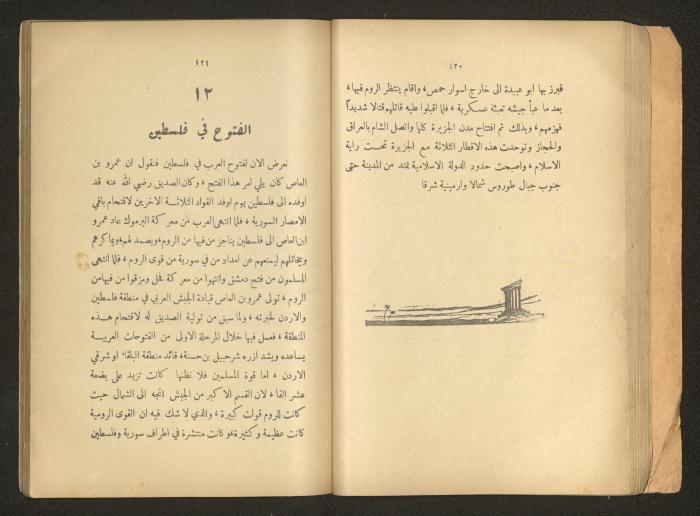 ١٢٠
فبرز بها ابو عبيدة الى خارج اسوار حمص، واقام ينتظر الروم فيها،
بعد ما عبأ جيشه تعبئة عسكرية، فلما اقبلوا عليه قاتلهم قتالا شديداً
فهزمهم، وبذلك تم افتتاح مدن الجزيرة كلها واتصل الشام بالعراق
والحجاز وتوحدت هذه الاقطار الثلاثة مع الجزيرة تحت راية
الاسلام، واصبحت حدود الدولة الاسلامية تمتد من المدينة حتى
جنوب جبال طوروس شمالا وارمينية شرقا
١٢١
١٢
الفتوح في فلسطين
نعرض الان لفتوح العرب في فلسطين فنقول ان عمرو بن
العاص كان يلي امر هذا الفتح، وكان الصديق رضي الله عنه قد
اوفده الى فلسطين يوم اوفد القواد الثلاثة الاخرين لاقتحام باقي
الامصار السورية، فلما انتهى العرب من معركة اليرموك عاد عمرو
ابن العاص الى فلسطين يناجز من فيها من الروم، ويصمد لهم، ويماكرهم
ويخاتلهم ليمنعهم عن امداد من في سورية من قوى الروم، فلما انتهى
المسلمون من فتح دمشق وانتهوا من معركة فحل ومزقوا من فيها من
الروم، تولى عمرو بن العاص قيادة الجيش العربي في منطقة فلسطين
والاردن لخبرته، ولما سبق من تولية الصديق له لاقتحام هذه
المنطقة، فعمل فيها خلال المرحلة الاولى من الفتوحات العربية
يساعده ويشد ازره شرحبيل بن حسنة، قائد منطقة البلقاء او شرقي
الاردن، اما قوة المسلمين فلا نظنها كانت تزيد على بضعة
عشر الفا، لان القسم الاكبر من الجيش اتجه الى الشمال حيث
كانت للروم قوات كبيرة، والذي لا شك فيه ان القوى الرومية
كانت عظيمة وكثيرة، وكانت منتشرة في اطراف سورية وفلسطين